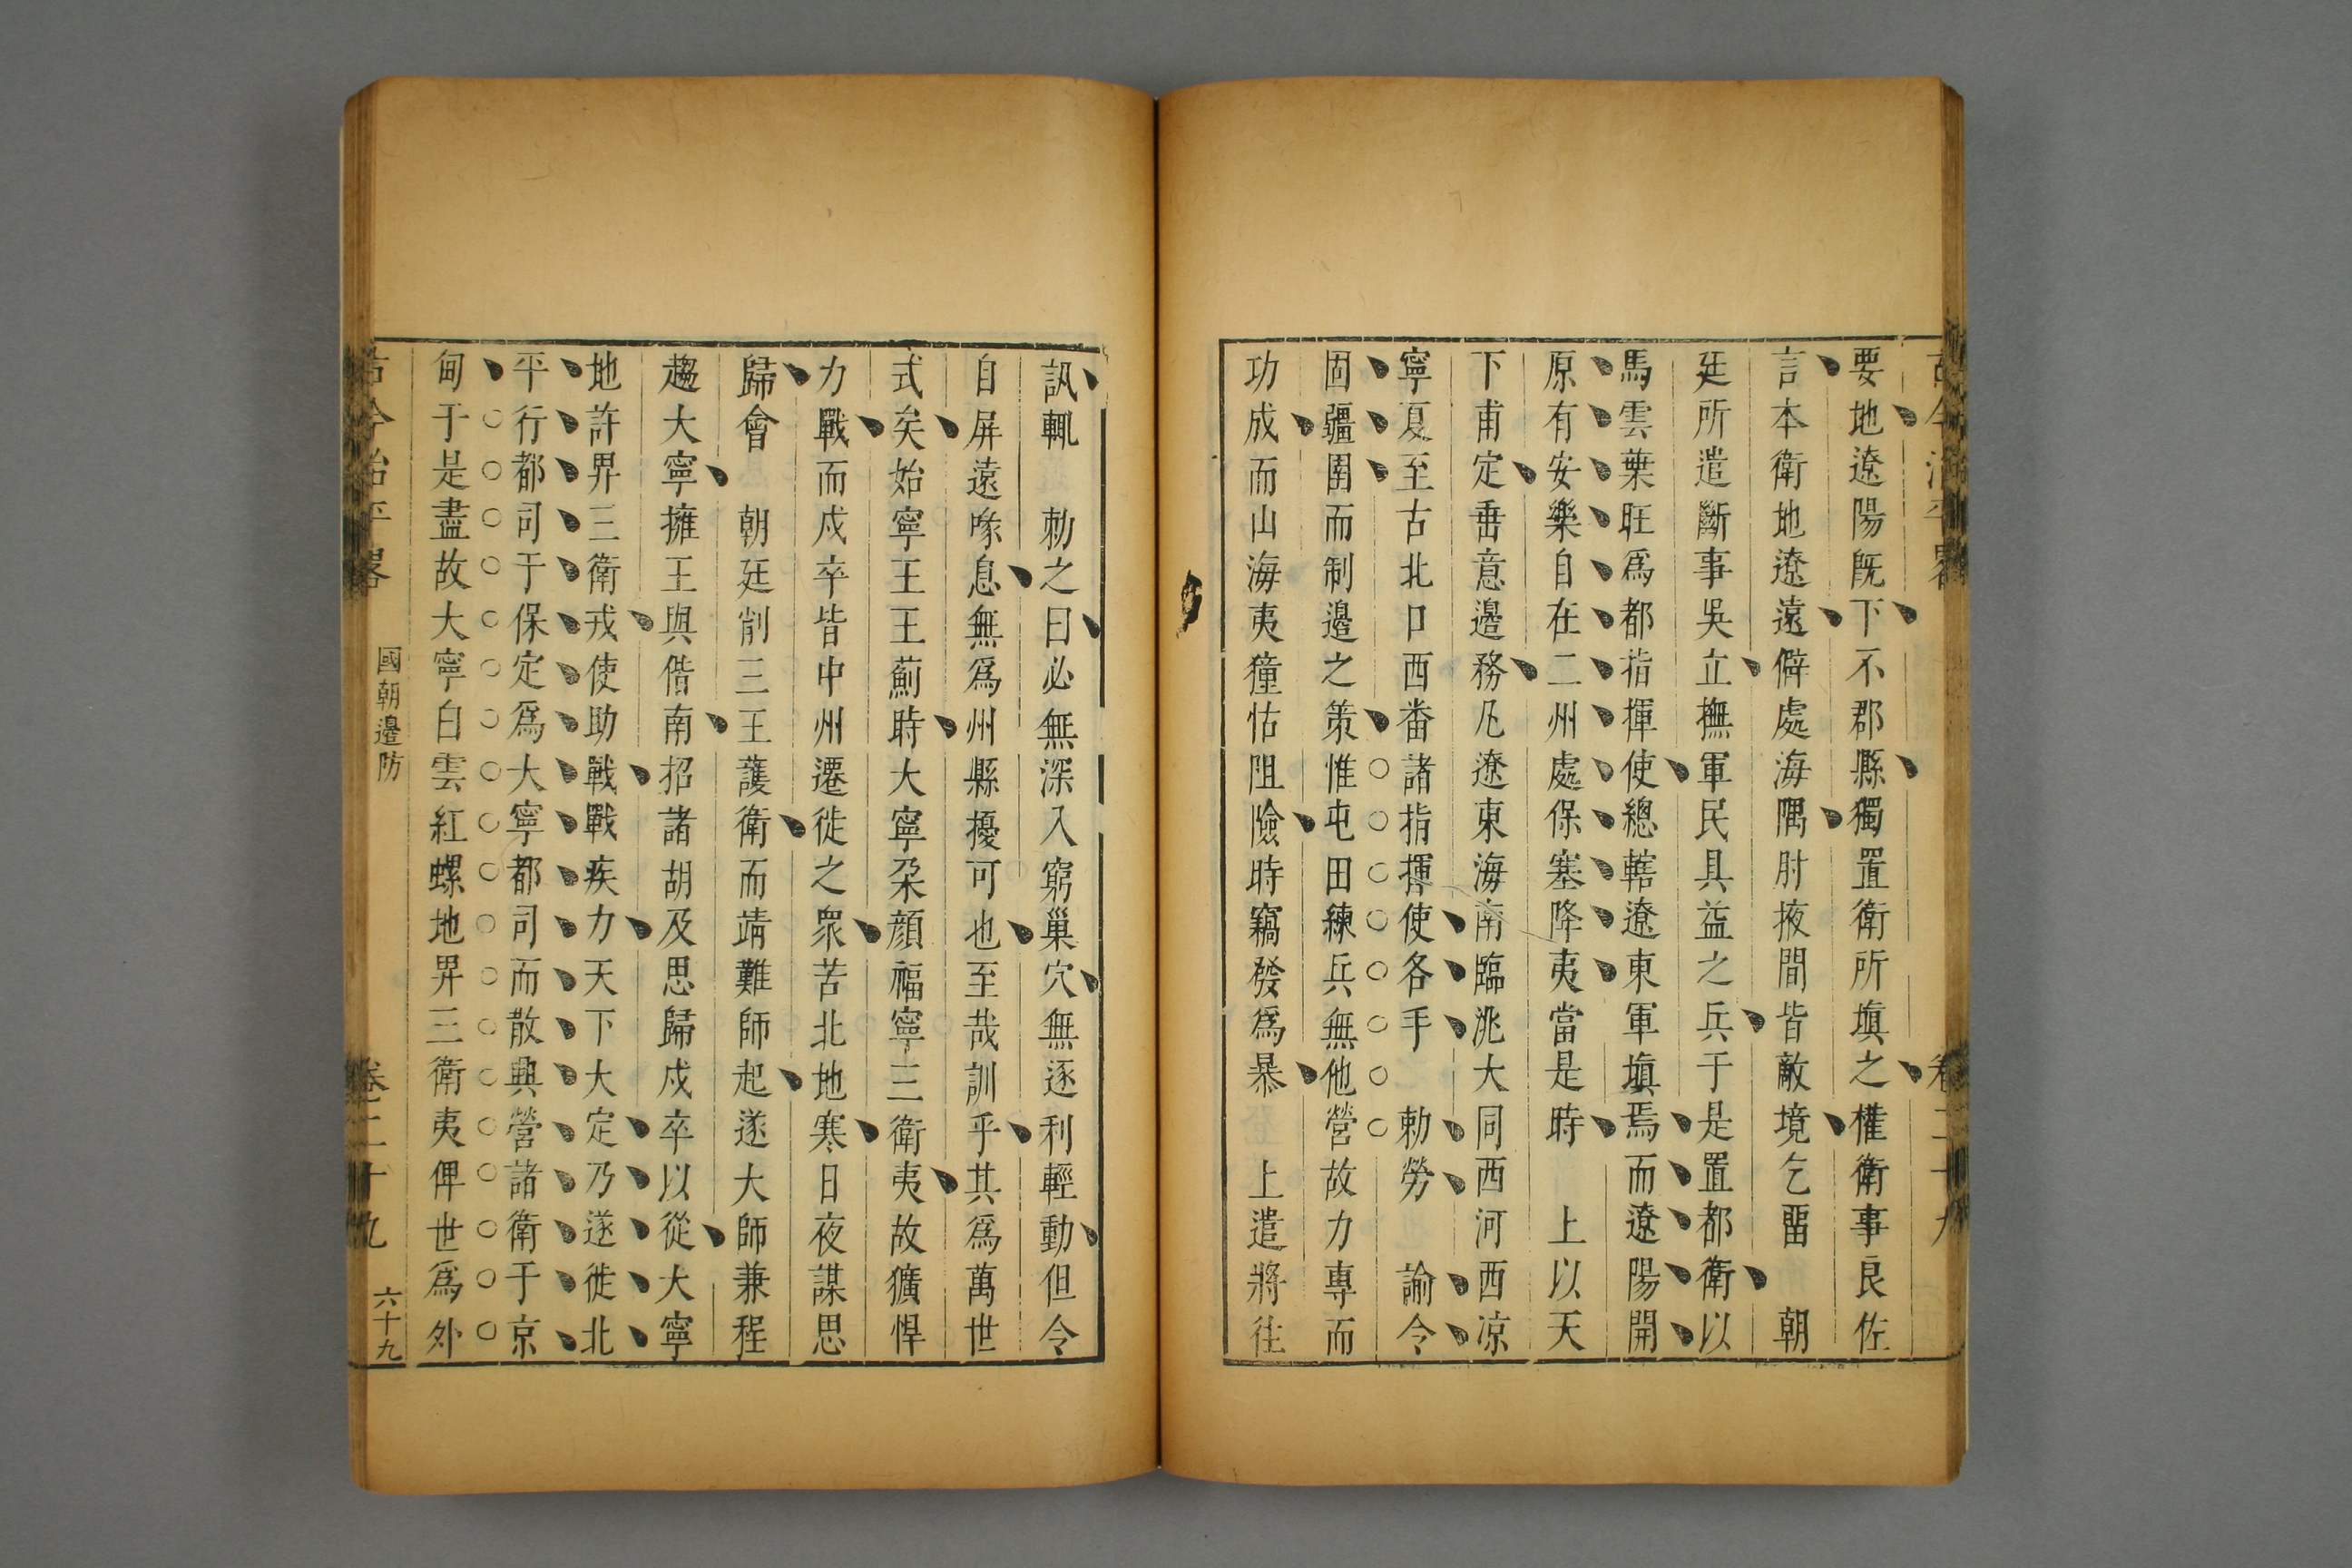 要地遼陽既下不郡縣獨置衛所塡之權衛事良佐
言本衛地遼遠僻處海隅肘掖間皆敵境乞畱 朝
廷所遣斷事吳立撫軍民具益之兵于是置都衛以
馬雲葉旺爲都指揮使總轄遼東軍塡焉而遼陽開
原有安樂自在二州處保塞降夷當是時 上以天
下甫定垂意邊務凡遼東海南臨洮大同西河西凉
寧夏至古北口西畨諸指揮使各手 勅勞 諭令
固疆圉而制邊之策惟屯田練兵無他營故力專而
功成而山海夷獞怙阻險時竊發爲暴 上遣將往
訊輒 勅之曰必無深入窮巢穴無逐利輕動但令
自屏遠喙息無爲州縣擾可也至哉訓乎其爲萬世
式矣始寧王王薊時大寧朶顔福寧三衛夷故獷悍
力戰而戍卒皆中州遷徙之衆苦北地寒日夜謀思
歸會 朝廷削三王護衛而靖難師起遂大師兼程
趨大寧擁王與偕南招諸胡及思歸戍卒以從大寧
地許畀三衛戎使助戰戰疾力天下大定乃遂徙北
平行都司于保定爲大寧都司而散興營諸衛于京
甸于是盡故大寧白雲紅螺地畀三衛夷俾世爲外
古今治平畧 國朝邊防 卷二十九 六十九